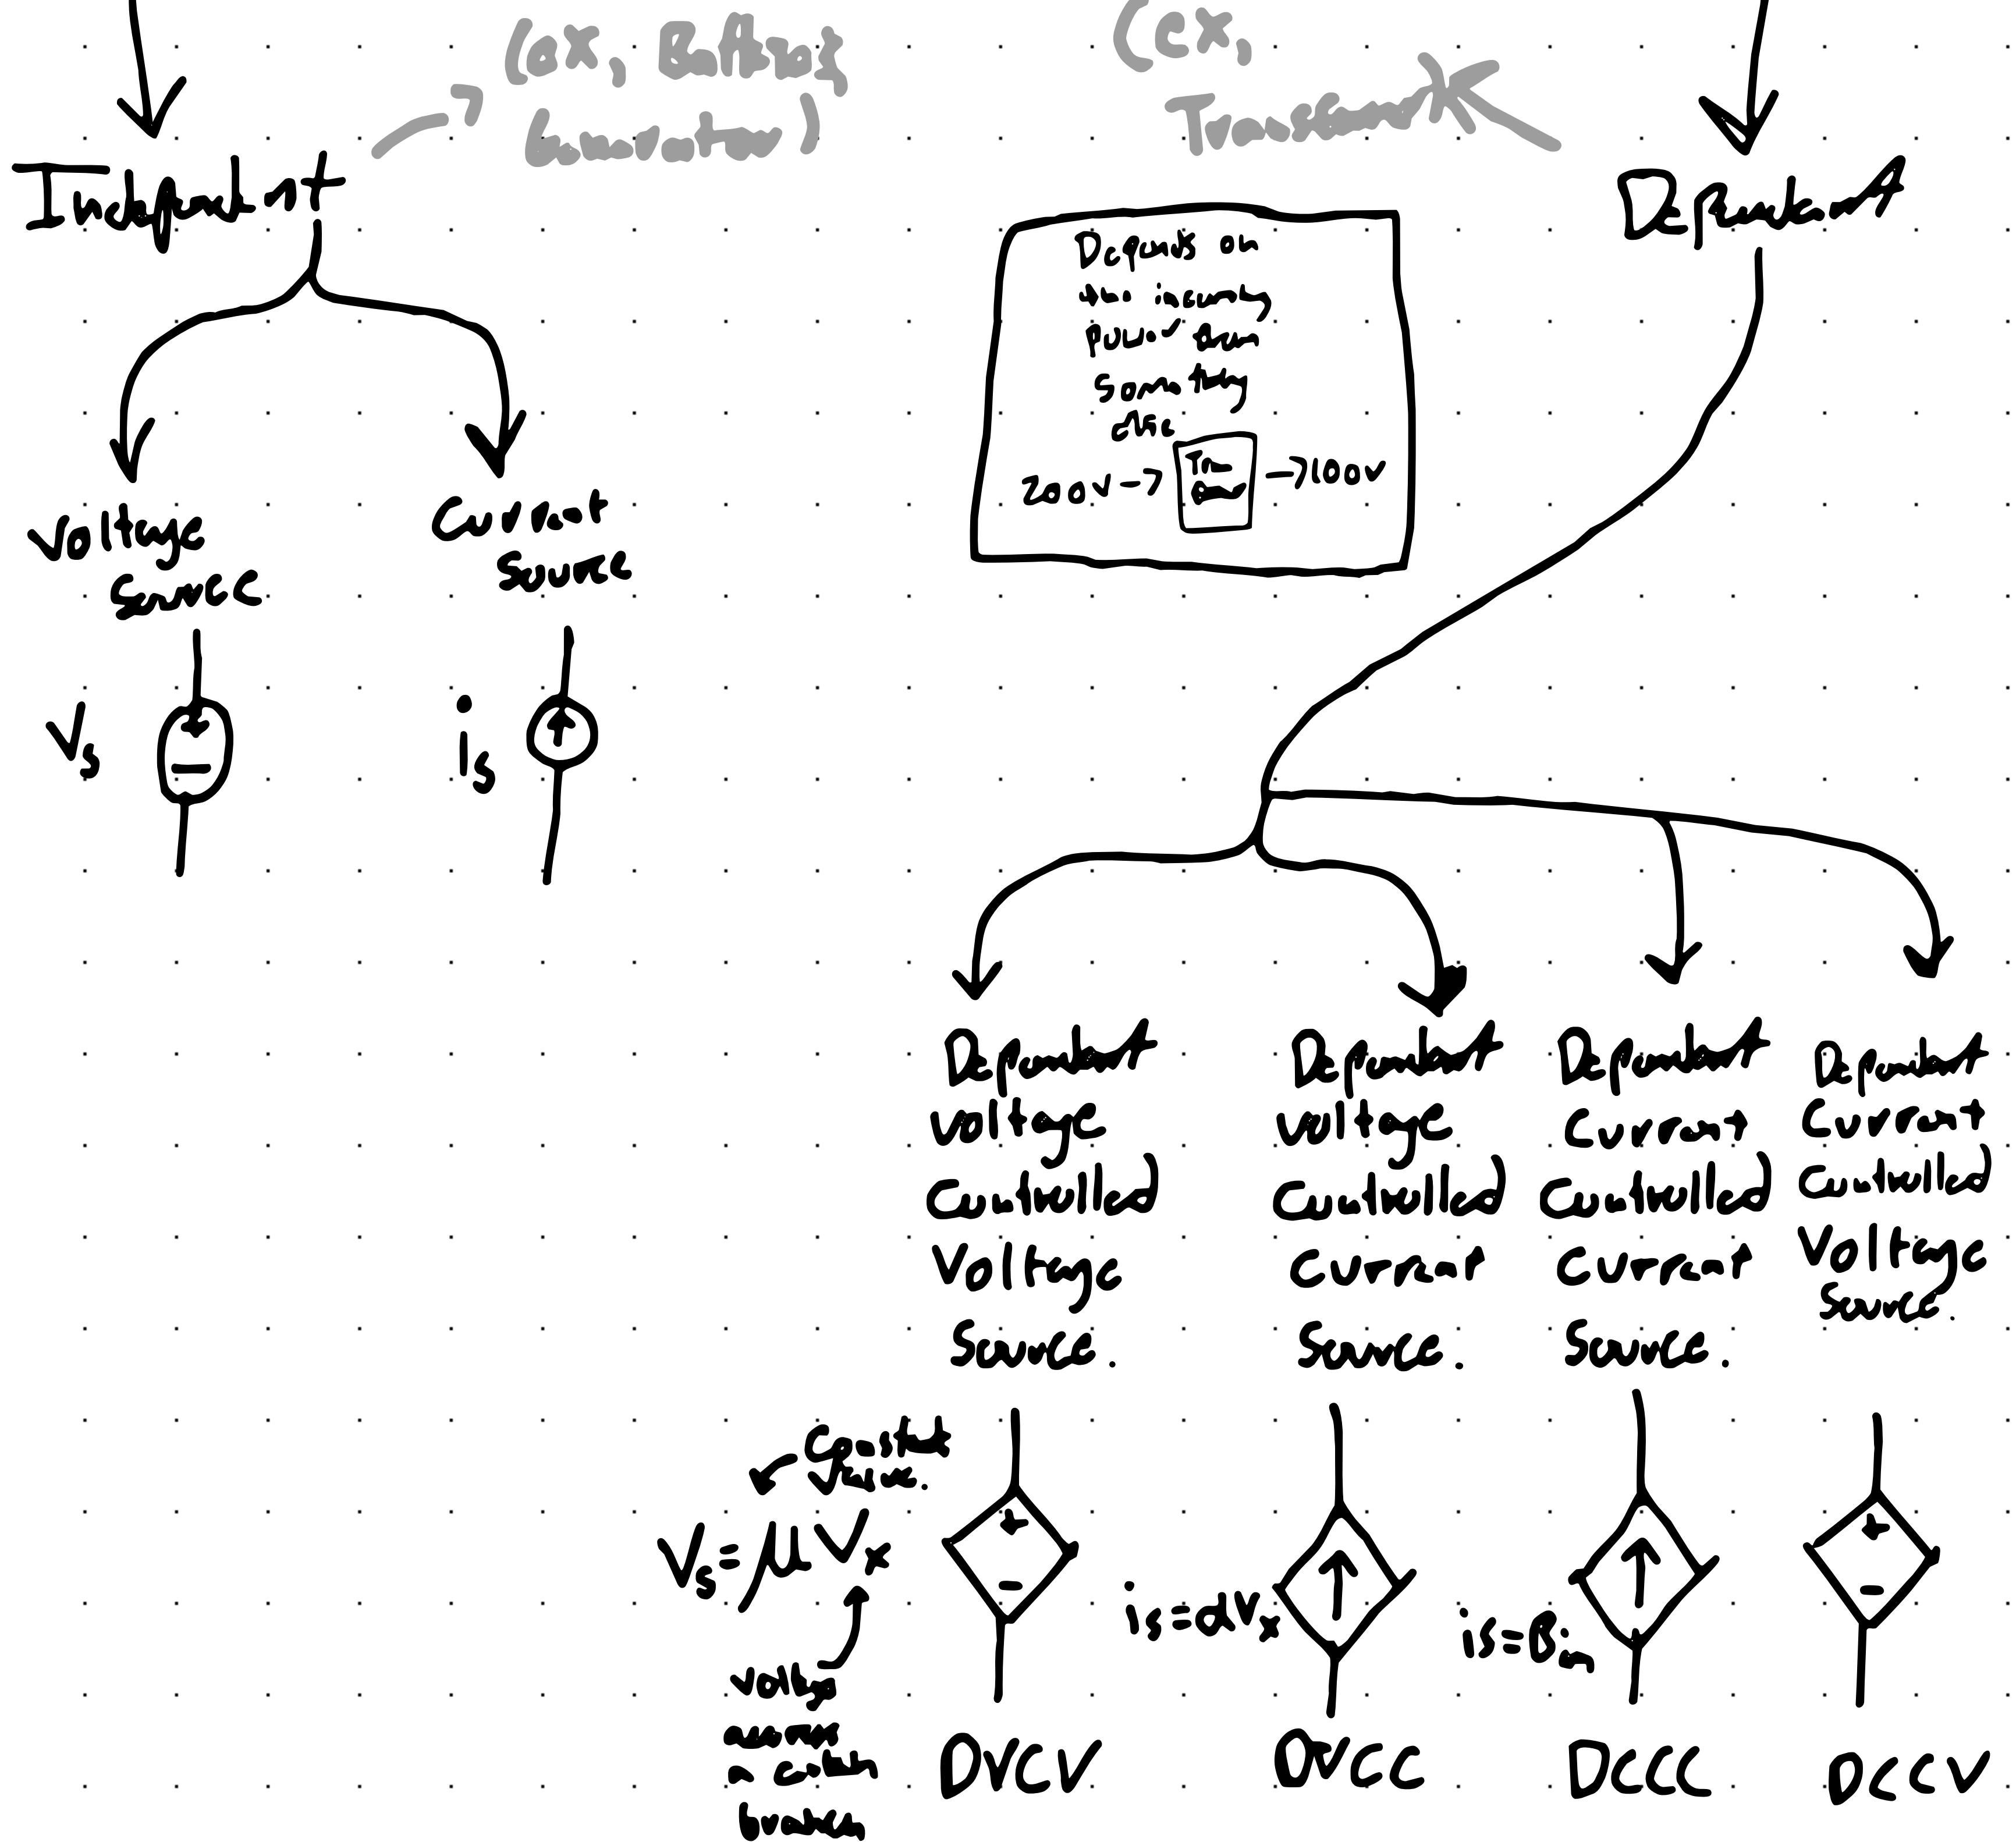 (ex, Battery
(ex,
Independent
Dependent
Depends on
incoming
power from
some thing
else
200V -> -> 100V
Voltage
Source
Current
Source
Vs
is
Dependent
Voltage
Controlled
Voltage
Source.
Dependent
Voltage
Controlled
Current
Source.
Dependent
Current
Controlled
Current
Source.
Dependent
Current
Controlled
Voltage
Source.
Constant
Value.
Vs = μVx
is = αVx
is = Bin
Voltage
DVCV
DVCC
DCCC
DCCV